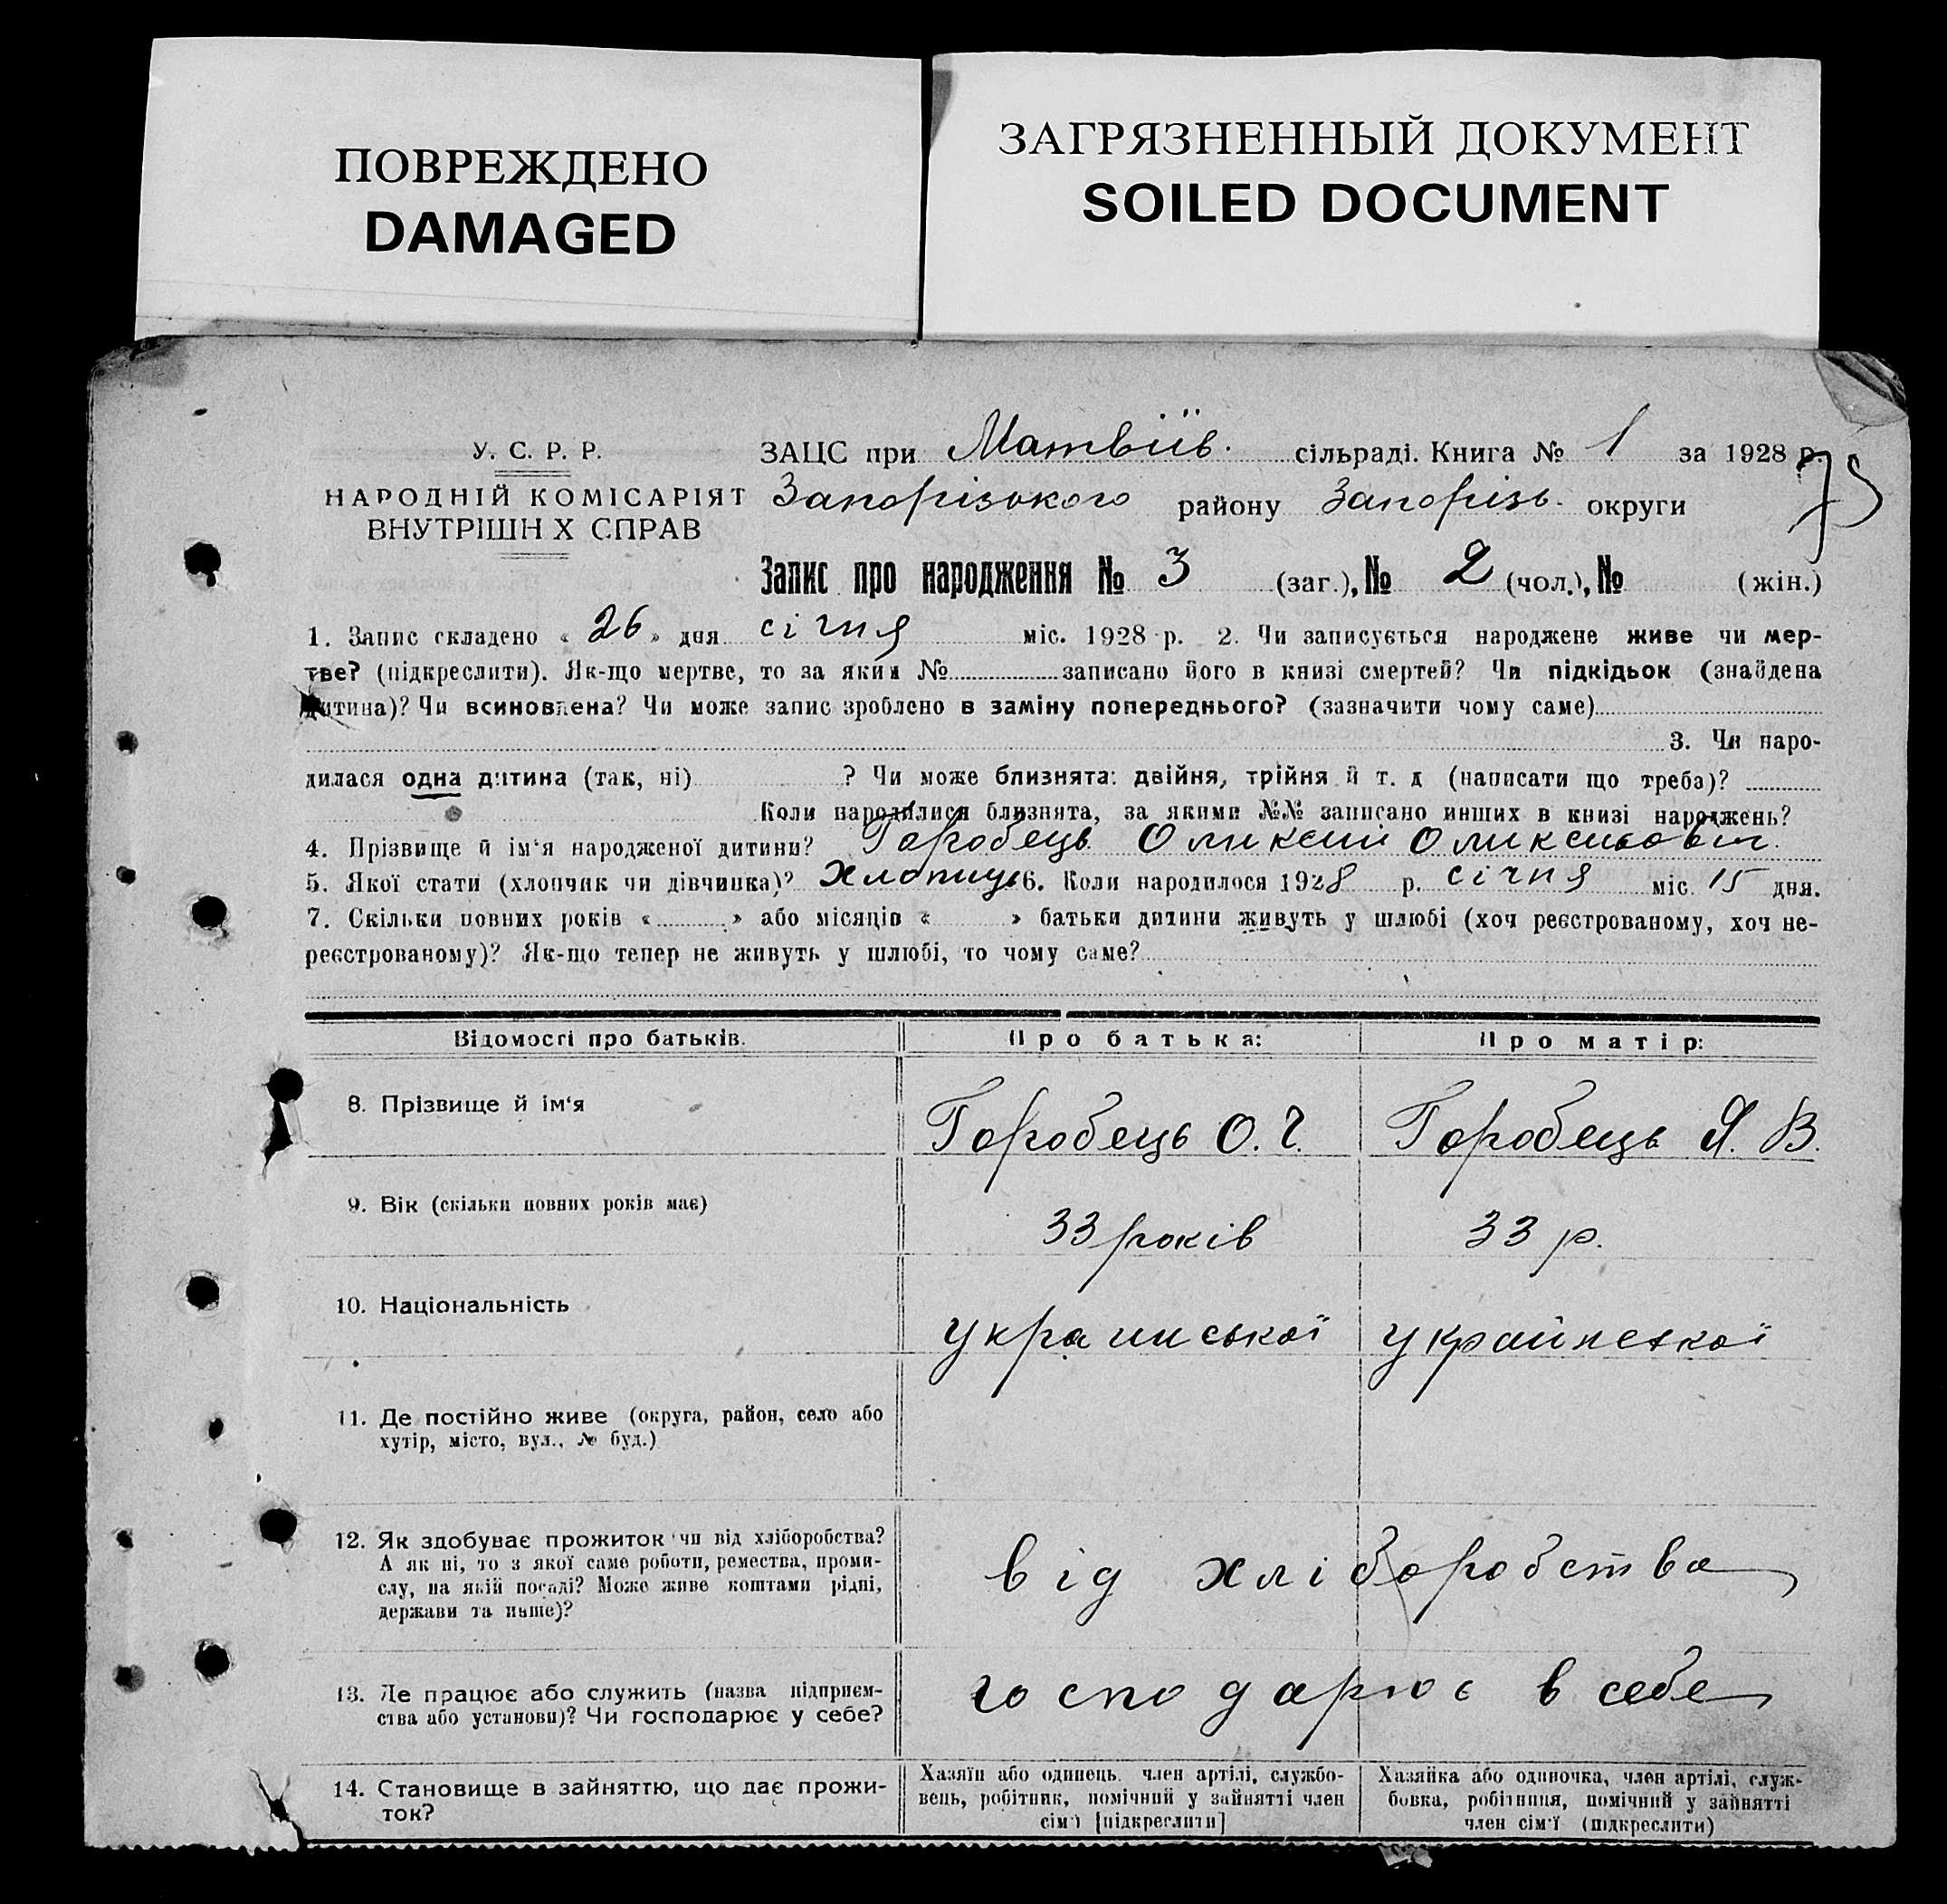 ПОВРЕЖДЕНО
DAMAGED
ЗАГРЯЗНЕННЫЙ ДОКУМЕНТ
SOILED DOCUMENT
У. С. Р. Р.
НАРОДНІЙ КОМІСАРІЯТ
ВНУТРІШН Х СПРАВ
ЗАЦС при Матвіїв. сільраді. Книга № 1 за 1928 р.
Запорізького району Запорізь. округи
75
Запис про народження № 3 (заг.), № 2 (чол.), № (жін.)
1. Запис складено « 26 » дня січня міс. 1928 р. 2. Чи записується народжене живе чи мер-
тве? (підкреслити). Як-що мертве, то за яким № записано його в книзі смертей? Чи підкідьок (знайдена
дитина)? Чи всиновлена? Чи може запис зроблено в заміну попереднього? (зазначити чому саме)
3. Чи наро-
дилася одна дитина (так, ні) ? Чи може близнята: двійня, трійня й т. д (написати що треба)?
Коли народилися близнята, за якими №№ записано инших в книзі народжень?
4. Прізвище й ім‘я народженої дитини? Горобець Оликсій Оликсьович.
5. Якої стати (хлопчик чи дівчинка)? Хлопиць 6. Коли народилося 1928 р. січня міс. 15 дня.
7. Скільки повних років « » або місяців « » батьки дитини живуть у шлюбі (хоч реєстрованому, хоч не-
реєстрованому)? Як-що тепер не живуть у шлюбі, то чому саме?
Відомості про батьків. Про батька: Про матір:
8. Прізвище й ім‘я Горобець О. Г. Горобець Я. В.
9. Вік (скільки повних років має) 33 років 33 р.
10. Національність украинської української
11. Де постійно живе (округа, район, село або
хутір, місто, вул., № буд.)
12. Як здобуває прожиток чи від хліборобства?
А як ні, то з якої саме роботи, ремества, проми-
слу, на якій посаді? Може живе коштами рідні,
держави та инше)?
від хліборобства
13. Де працює або служить (назва підприєм-
ства або установи)? Чи господарює у себе?
господарює в себе
14. Становище в зайняттю, що дає прожи-
ток?
Хазяїн або одинець. член артілі, службо-
вець, робітник, помічний у зайнятті член
сім‘ї [підкреслити]
Хазяйка або одиночка, член артілі, служ-
бовка, робітниця, помічний у зайнятті
член сім‘ї (підкреслити)